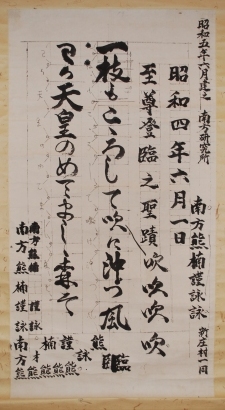 昭和五年六月建之 南方研究所
昭和四年六月一日
至尊登臨之聖蹟 吹吹吹吹
南方熊楠謹詠詠
新庄村一同
一枝もこゝろして吹け沖つ風
わか天皇のめてましゝ森そ
南方熊楠 謹詠
南方熊楠謹詠
南方
熊熊熊熊
楠謹詠
熊
臨